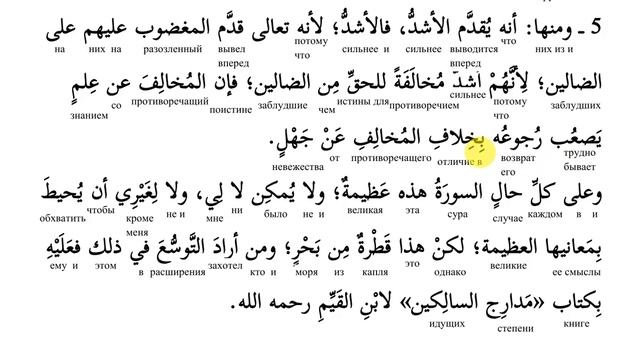 5 ـ ومنها: أنه يُقدَّم الأشدُّ، فالأشدُّ؛ لأنه تعالى قدَّم المغضوب عليهم على
на них на разозленный вывел вперед потому что сильнее и сильнее выводится вперед что них из и
الضالين؛ لِأَنَّهُمْ أشدّ مُخالَفَةً للحقِّ مِن الضالين؛ فإن المُخالِفَ عن عِلمٍ
знанием со противоречащий поистине заблудшие чем истины для противоречием сильнее потому что заблудших
يَصعُب رُجوعُه بِخِلافِ المُخالِفِ عَنْ جَهْلٍ.
невежества от противоречащего отличие в возврат его трудно бывает
وعلى كلِّ حالٍ السورَةُ هذه عَظيمةٌ؛ ولا يُمكِن لا لِي، ولا لِغَيْرِي أن يُحيطَ
обхватить чтобы кроме меня не и мне ни было не и великая эта сура случае каждом в и
بِمَعانيها العظيمة؛ لكنْ هذا قَطْرةٌ مِن بَحْرٍ؛ ومن أرادَ التَّوسُّعَ في ذلك فعَلَيْهِ
ему и этом в расширения захотел кто и моря из капля это однако великие ее смыслы
بِكتاب «مَدارِج السالِكين» لابْنِ القَيِّمِ رحمه الله.
идущих степени книге